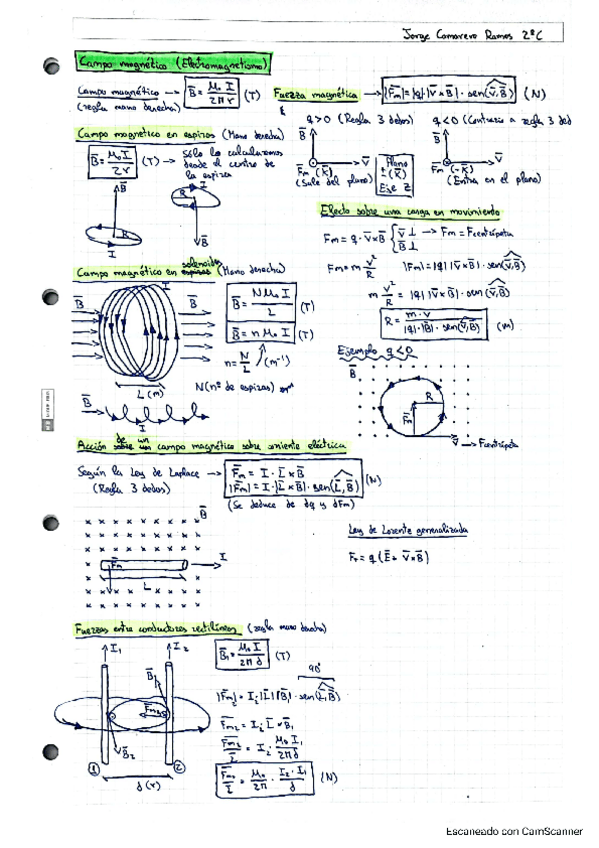 Jorge Camarero Ramos 2ºC
Campo magnético (Electromagnetismo)
Campo magnético → B̅ = μ₀ I / 2πr (T)
(regla mano derecha)
Fuerza magnética → |F̅m| = |q| |V̅ × B̅| · sen(V̅,B̅) (N)
q > 0 (Regla 3 dedos)
q < 0 (Contrario a regla 3 ded
Campo magnético en espiras (Mano derecha)
B̅ = μ₀ I / 2r (T) → Sólo lo calcularemos
desde el centro de
la espira
B̅
V̅
F̅m (K̅)
(Sale del plano)
Plano
± (K̅)
Eje Z
B̅
V̅
F̅m (-K̅)
(Entra en el plano)
B̅
R
I
I
R
B̅
Efecto sobre una carga en movimiento
Fm = q · V̅ × B̅ { V̅ ⊥ B̅ ⊥ → Fm = Fcentrípeta
Fm = m v²/R
|Fm| = |q| |V̅ × B̅| · sen(V̅,B̅)
m v²/R = |q| |V̅ × B̅| · sen(V̅,B̅)
R = m · v / |q| · |B̅| · sen(V̅,B̅) (m)
Campo magnético en espiras solenoides (Mano derecha)
B̅
I
B̅
B̅ = N μ₀ I / L (T)
B̅ = n μ₀ I (T)
n = N/L (m⁻¹)
L (m)
N (nº de espiras)
B̅
I
Ejemplo q < 0
B̅
R
F̅m
V̅ → Fcentrípeta
Acción de un campo magnético sobre corriente eléctrica
Según la Ley de Laplace →
(Regla 3 dedos)
F̅m = I · L̅ × B̅
|F̅m| = I · |L̅ × B̅| · sen(L̅,B̅) (N)
(Se deduce de dq y dFm)
B̅
F̅m
I
L
Ley de Lorentz generalizada
F = q (E̅ + V̅ × B̅)
Fuerzas entre conductores rectilíneos (regla mano derecha)
I₁
I₂
B̅₁
F̅m₂
B̅₂
1
2
d (r)
B̅₁ = μ₀ I / 2π d (T)
90º
|F̅m₂| = I₂ |L̅| |B̅₁| · sen(L̅,B̅)
F̅m₂ = I₂ · L̅ × B̅₁
F̅m₂ / L̅ = I₂ · μ₀ I₁ / 2π d
F̅m₂ / L̅ = μ₀ / 2π · I₂ · I₁ / d (N)
Escaneado con CamScanner